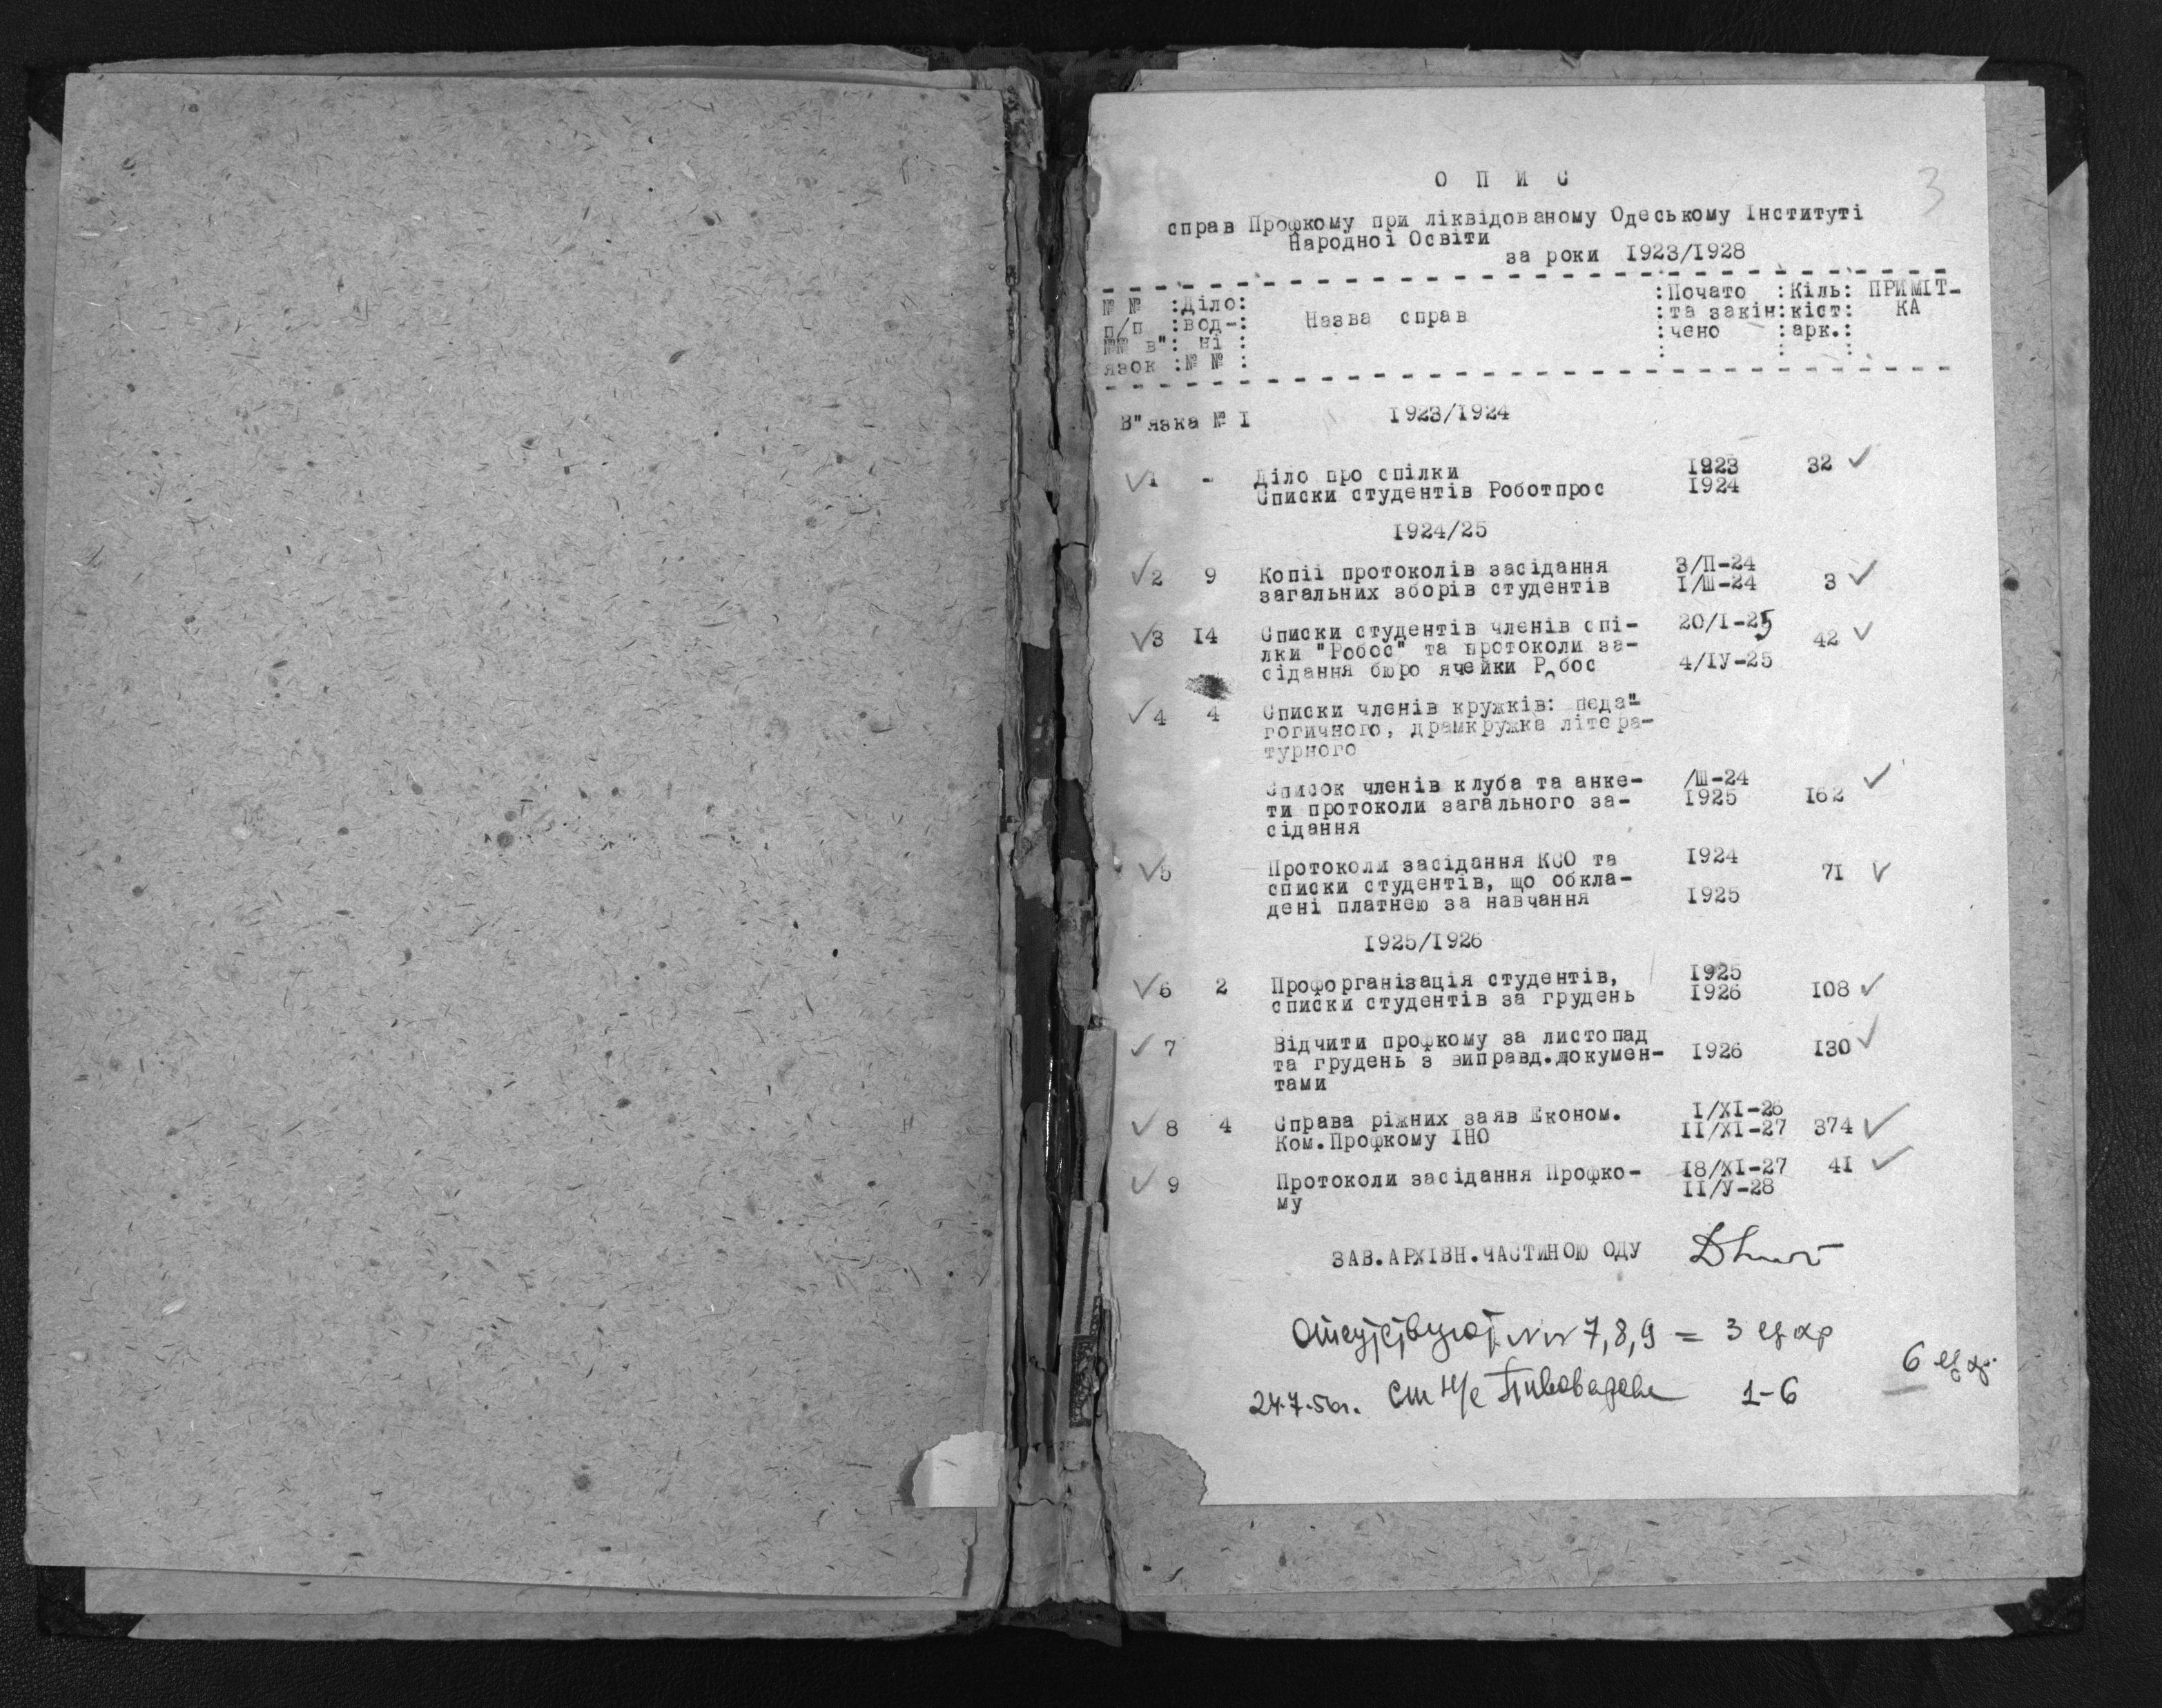 3
О П И С
справ Профкому при ліквідованому Одеському Інституті
Народної Освіти
за роки 1923/1928
№ № :Діло: :Почато :Кіль: ПРИМІТ-
п/п :вод-: Назва справ :та закін:кіст: КА
№№ в": ні : :чено :арк.:
язок :№ № : : : :
В"язка № I 1923/1924
1 - Діло про спілки 1923 32
Списки студентів Роботпрос 1924
1924/25
2 9 Копії протоколів засідання 3/П-24
загальних зборів студентів I/Ш-24 3
3 I4 Списки студентів членів спі- 20/I-25
лки "Робос" та протоколи за- 42
сідання бюро ячейки Робос 4/IУ-25
4 4 Списки членів кружків: педа"-
гогичного, драмкружка літера-
турного
Список членів клуба та анке- /Ш-24
ти протоколи загального за- 1925 I62
сідання
5 Протоколи засідання КСО та 1924
списки студентів, що обкла- 7I
дені платнею за навчання 1925
1925/1926
6 2 Профорганізація студентів, 1925
списки студентів за грудень 1926 I08
7 Відчити профкому за листопад
та грудень з виправд.докумен- 1926 I30
тами
8 4 Справа ріжних заяв Економ. I/XI-26
Ком.Профкому ІНО II/XI-27 374
9 Протоколи засідання Профко- I8/XI-27 4I
му II/У-28
ЗАВ.АРХІВН.ЧАСТИНОЮ ОДУ
Отсутствуют №№ 7,8,9 = 3 ед хр
6 ед хр.
24.7.56г. Ст н/с Пивоварова 1-6